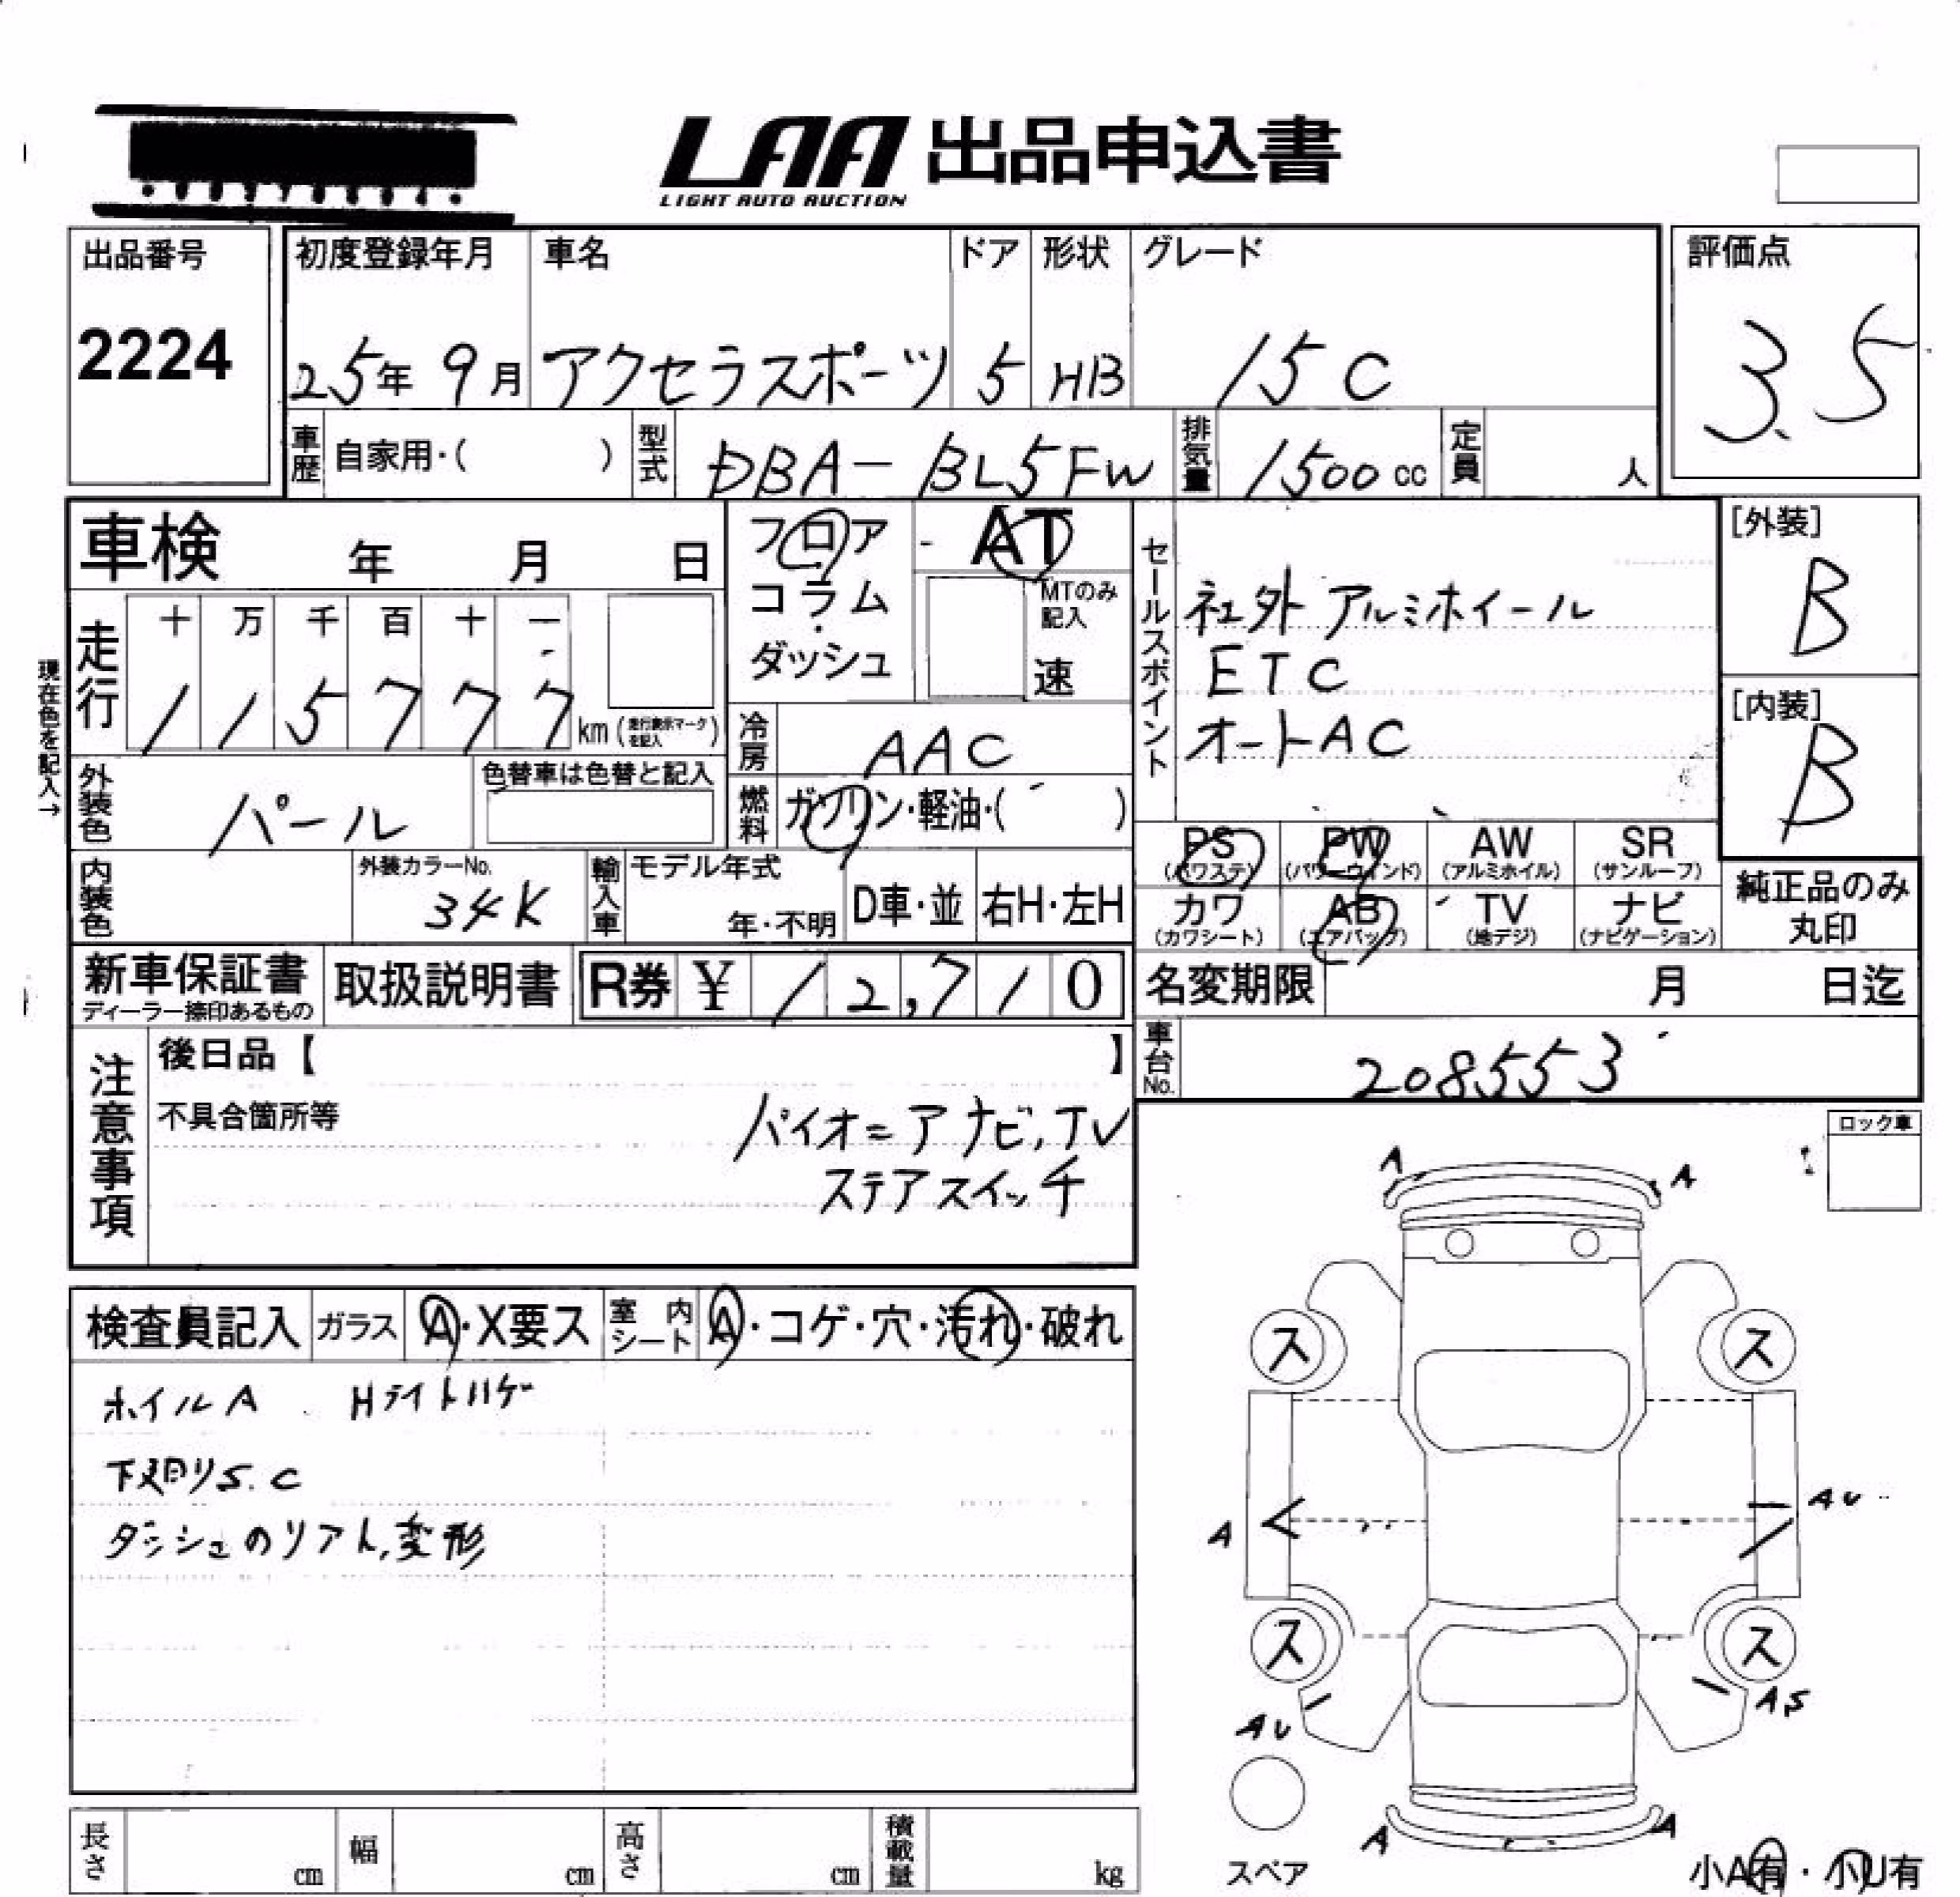 LAA 出品申込書
LIGHT AUTO AUCTION
出品番号
2224
初度登録年月
25年 9月
車名
アクセラスポーツ
ドア
5
形状
HB
グレード
15C
評価点
3.5
車歴 自家用・( )
型式 DBA-BL5FW
排気量 1500 cc
定員 人
車検 年 月 日
走行
十 万 千 百 十 一
1 1 5 7 7 7 km (走行表示マークを記入)
現在色を記入→
外装色 パール
色替車は色替と記入
内装色
外装カラーNo.
34K
フロア
コラム
・
ダッシュ
AT
MTのみ記入
速
冷房 AAC
燃料 ガソリン・軽油・( )
輸入車
モデル年式
年・不明
D車・並
右H・左H
セールスポイント
社外アルミホイール
ETC
オートAC
[外装]
B
[内装]
B
PS
(パワステ)
PW
(パワーウィンド)
AW
(アルミホイル)
SR
(サンルーフ)
カワ
(カワシート)
AB
(エアバッグ)
TV
(地デジ)
ナビ
(ナビゲーション)
純正品のみ
丸印
新車保証書
ディーラー捺印あるもの
取扱説明書
R券 ¥ 12,710
名変期限 月 日迄
車台No. 208553
注意事項
後日品【 】
不具合箇所等
パイオニアナビ,TV
ステアスイッチ
ロック車
検査員記入
ガラス
A・X要ス
室内シート
A・コゲ・穴・汚れ・破れ
ホイルA Hライトハゲ
下廻りS.C
ダッシュのリアト,変形
A
A
ス
ス
A
AU
ス
ス
AU
AS
A
A
スペア
小A有・小U有
長さ cm
幅 cm
高さ cm
積載量 kg